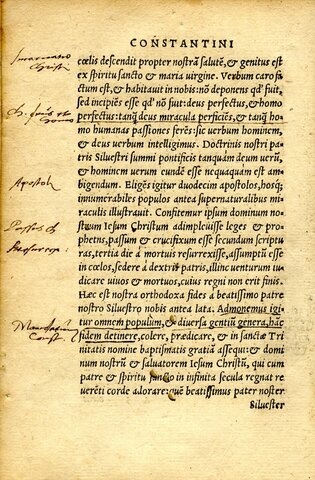 CONSTANTINI
cœlis descendit propter nostrā salutē, & genitus est
ex spiritu sancto & maria virgine. Verbum caro fi-
ctum est, & habitauit in nobis: nō deponens qđ fuit,
sed incipiēs esse qđ nō fuit: deus perfectus, & homo
perfectus: tanq̄ deus miracula perficiēs, & tanq̄ ho
mo humanas passiones ferēs: sic verbum hominem,
& deus verbum intelligimus. Doctrinis nostri pa-
tris Siluestri summi pontificis tanquām deum verū,
& hominem verum eundē esse nequaquam est am-
bigendum. Eligēs igitur duodecim apostolos, hosq;
innumerabiles populos antea supernaturalibus mi-
raculis illustrauit. Confitemur ipsum dominum no-
strum Iesum Christum adimpleuisse leges & pro-
phetas, passum & crucifixum esse secundum scriptu-
ras, tertia die à mortuis resurrexisse, assumptū esse
in cœlos, sedere à dextris patris, illinc uenturum iu-
dicare uiuos & mortuos, cuius regni non erit finis.
Hæc est nostra orthodoxa fides à beatissimo patre
nostro Siluestro nobis antea lata. Admonemus igi
tur omnem populum, & diuersa gentiū genera, hāc
fidem detinere, colere, prædicare, & in sanctæ Tri
nitatis nomine baptismatis gratiā assequi: & domi-
num nostrum & saluatorem Iesum Christū, qui cum
patre & spiritu sancto in infinita secula regnat re
uerēti corde adorare: quē beatissimus pater noster
Siluester
Apostoli